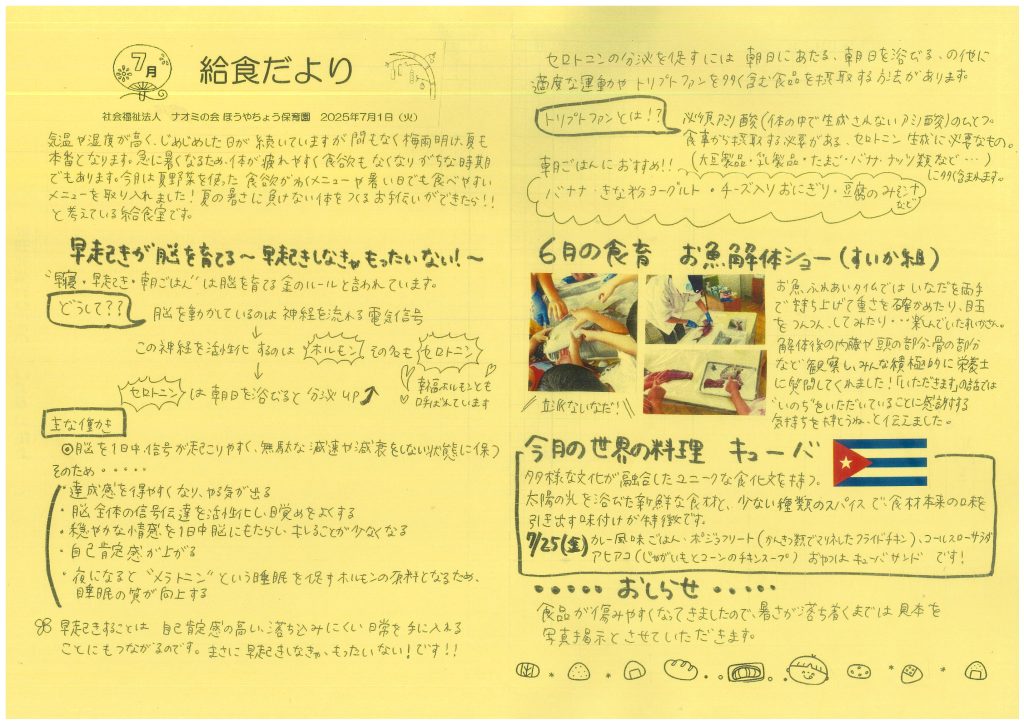 7月
給食だより
社会福祉法人 ナオミの会 ほうやちょう保育園 2025年7月1日（火）
気温や湿度が高く、じめじめした日が続いていますが間もなく梅雨明け、夏も
本番となります。急に暑くなるため、体が疲れやすく食欲もなくなりがちな時期
でもあります。今月は夏野菜を使った食欲がわくメニューや暑い日でも食べやすい
メニューを取り入れました！夏の暑さに負けない体をつくるお手伝いができたら！！
と考えている給食室です。
早起きが脳を育てる〜早起きしなきゃもったいない！〜
"早寝・早起き・朝ごはん"は脳を育てる金のルールと言われています。
どうして？？
脳を動かしているのは神経を流れる電気信号
この神経を活性化するのは ホルモン その名も セロトニン
幸福ホルモンとも
呼ばれています
セロトニン は朝日を浴びると分泌UP
主な働き
◎脳を1日中信号が起こりやすく、無駄な減速や減衰をしない状態に保つ
そのため・・・・・
・達成感を得やすくなり、やる気が出る
・脳全体の信号伝達を活性化し目覚めをよくする
・穏やかな情感を1日中脳にもたらし、キレることが少なくなる
・自己肯定感が上がる
・夜になると"メラトニン"という睡眠を促すホルモンの原料となるため、
睡眠の質が向上する
早起きすることは 自己肯定感の高い、落ち込みにくい日常を手に入れる
ことにもつながるのです。まさに早起きしなきゃ、もったいない！です！！
セロトニンの分泌を促すには 朝日にあたる、朝日を浴びる、の他に
適度な運動やトリプトファンを多く含む食品を摂取する方法があります。
トリプトファンとは！？
必須アミノ酸（体の中で生成されないアミノ酸）のひとつ。
食事から摂取する必要がある、セロトニン生成に必要なもの。
（大豆製品・乳製品・たまご・バナナ・ナッツ類など・・・）
に多く含まれます。
朝ごはんにおすすめ！！
バナナ・きな粉ヨーグルト・チーズ入りおにぎり・豆腐のみそ汁
など
6月の食育 お魚解体ショー（すいか組）
お魚ふれあいタイムではいなだを両手
で持ち上げて重さを確かめたり、目玉
をつんつんしてみたり・・・楽しんでいたれいかさん。
解体後の内臓や頭の部分、骨の部分
など観察し、みんな積極的に栄養士
に質問してくれました！「いただきます」の話では
"いのち"をいただいていることに感謝する
気持ちを大切にしようね、と伝えました。
立派ないなだ！
今月の世界の料理 キューバ
多様な文化が融合したユニークな食文化を持つ。
太陽の光を浴びた新鮮な食材と、少ない種類のスパイスで、食材本来の味を
引き出す味付けが特徴です。
7/25(金) カレー風味ごはん・ポジョフリート（かんきつ類でマリネしたフライドチキン）、コールスローサラダ
アヒアコ（じゃがいもとコーンのチキンスープ） おやつはキューバサンド です！
・・・・・ おしらせ ・・・・・
食品が傷みやすくなってきましたので、暑さが落ち着くまでは見本を
写真掲示とさせていただきます。